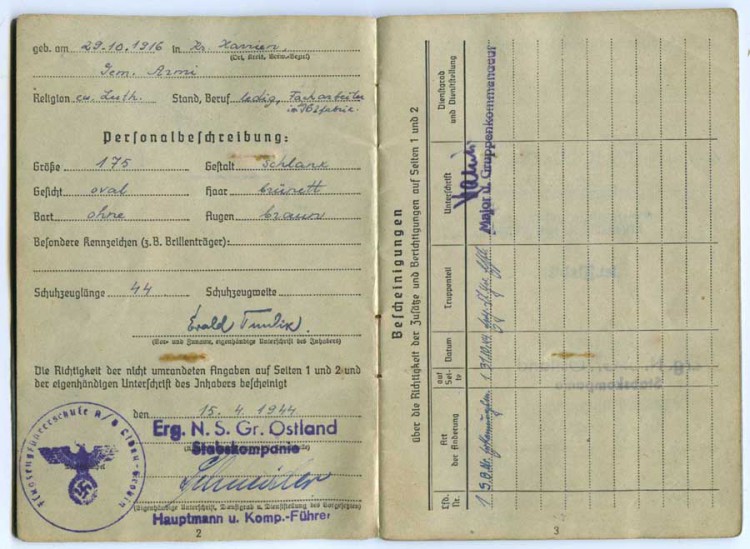 geb. am 29.10.1916 in Kr. Harrien,
(Ort, Kreis, Verw.-Bezirk)
Gem. Armi
Religion ev. Luth. Stand, Beruf ledig, Facharbeiter
Personalbeschreibung:
Größe 175 Gestalt schlank
Gesicht oval Haar brünett
Bart ohne Augen braun
Besondere Kennzeichen (z.B. Brillenträger):
Schuhzeuglänge 44 Schuhzeugweite
Evald
(Vor- und Zuname, eigenhändige Unterschrift des Inhabers)
Die Richtigkeit der nicht umrandeten Angaben auf Seiten 1 und 2 und
der eigenhändigen Unterschrift des Inhabers bescheinigt
den 15.4.1944
Erg. N. S. Gr. Ostland
Stabskompanie
(Eigenhändige Unterschrift, Dienstgrad u. Dienststellung des Vorgesetzten)
Hauptmann u. Komp.-Führer
2
Flugzeugführerschule A/B
Bescheinigungen
über die Richtigkeit der Zusätze und Berichtigungen auf Seiten 1 und 2
Lfd. Nr.
Art der Änderung
auf Seite
Datum
Truppenteil
Unterschrift
Dienstgrad und Dienststellung
1
1
Major u. Gruppenkommandeur
3